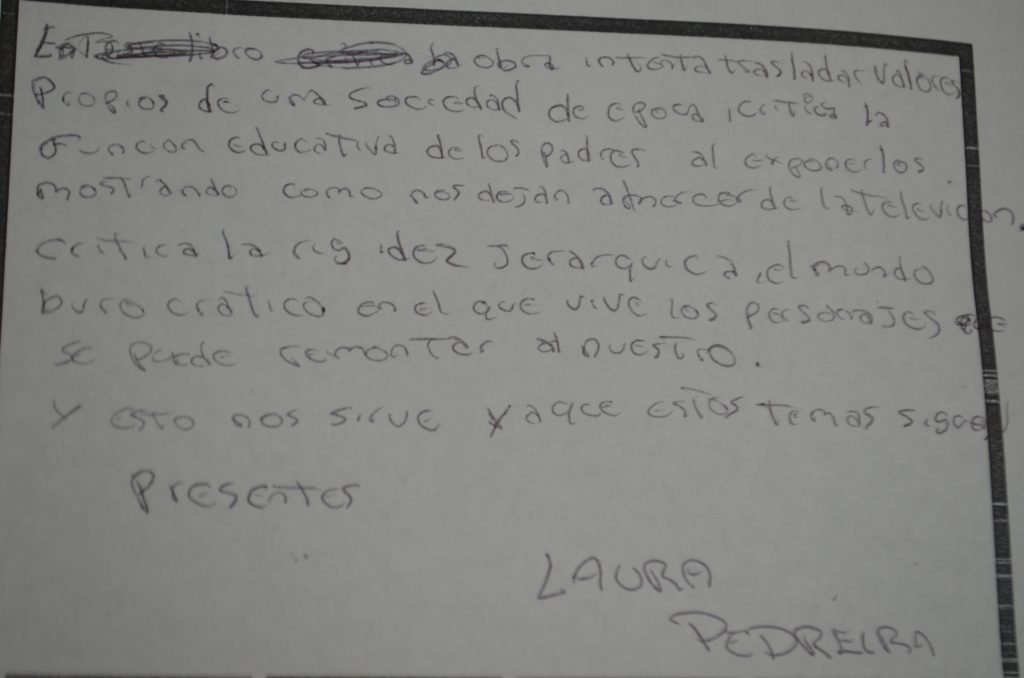 La obra intenta trasladar valores
Propios de una sociedad de epoca, critica la
Funcion educativa de los padres al exponerlos
mostrando como nos dejan a de la televicion,
critica la rigidez Jerarquica, el mundo
burocratico en el que vive los personajes
se puede remontar al nuestro.
Y esto nos sirve ya que estos temas siguen
Presentes
LAURA
PEDREIRA